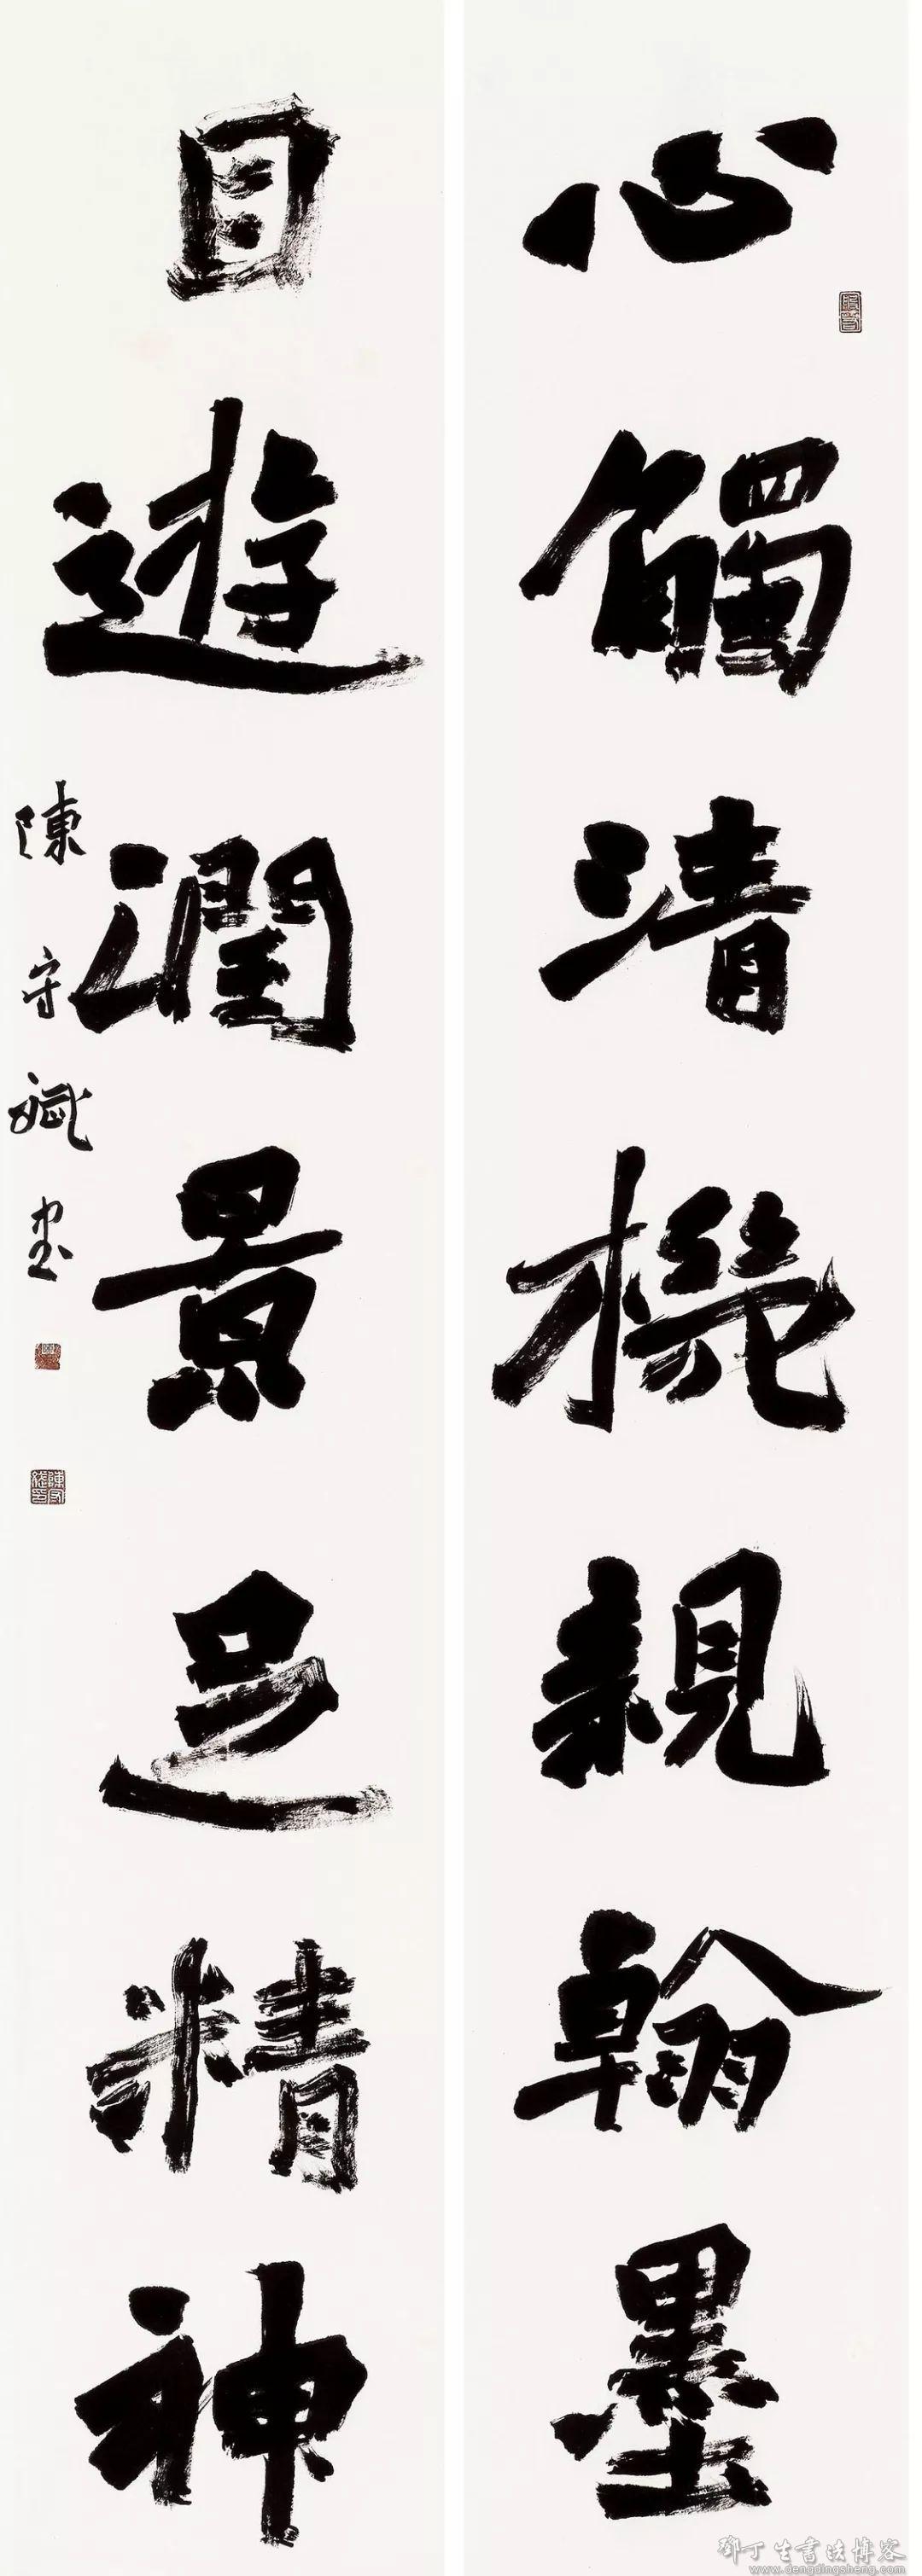 心觸清機親翰墨
目遊潤景足精神
陳守斌書
鄧丁生書法博客
www.dengdingsheng.com